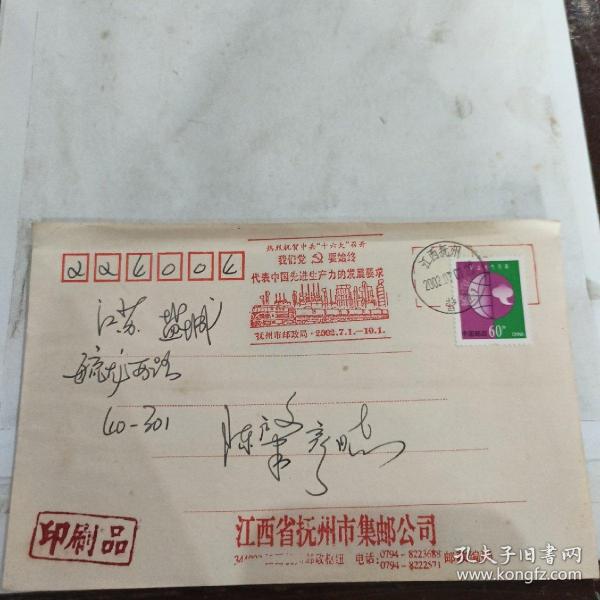 热烈祝贺中共“十六大”召开
我们党 要始终
代表中国先进生产力的发展要求
抚州市邮政局·2002.7.1.—10.1.
江西抚州
2002.07.0
中国邮政 60分
224004
江苏 盐城
毓龙西路
40-301
陈
印刷品
江西省抚州市集邮公司
邮政枢纽 电话:0794-8223688 邮
0794-8222571
孔夫子旧书网
www.kongfz.com